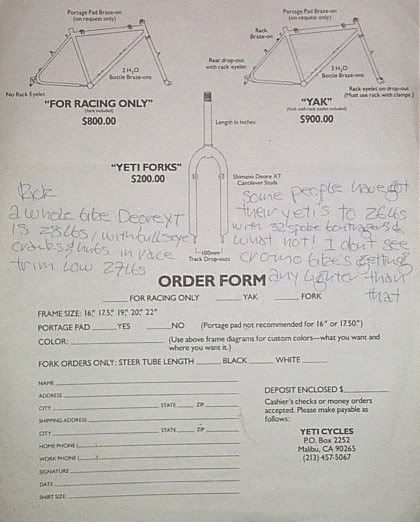 Portage Pad Braze-on
(on request only)
Portage Pad Braze-on
(on request only)
Rack
Braze-on
Rear drop-out
with rack eyelet
2 H2O
Bottle Braze-ons
2 H2O
Bottle Braze-ons
No Rack Eyelet
Rack eyelet on drop-out
(Must use rack with clamps.)
"FOR RACING ONLY"
(fork included)
$800.00
"YAK"
(fork with rack eyelets included)
$900.00
Length in Inches
"YETI FORKS"
$200.00
Shimano Deore XT
Cantilever Studs
100mm
Track Drop-outs
a whole bike Deore XT
is 28 lbs/with bullseye
cranks & hubs in race
trim low 27 lbs
Some people have got
their yeti's to 26 lbs
with 32 spoke bontragers &
what not! I don't see
cromo bikes getting
any lighter than
that
ORDER FORM
FOR RACING ONLY YAK FORK
FRAME SIZE: 16," 17.5," 19," 20," 22"
PORTAGE PAD YES NO (Portage pad not recommended for 16" or 17.50.")
COLOR: (Use above frame diagrams for custom colors—what you want and
where you want it.)
FORK ORDERS ONLY: STEER TUBE LENGTH BLACK WHITE
NAME
ADDRESS
CITY STATE ZIP
SHIPPING ADDRESS
CITY STATE ZIP
HOME PHONE ( )
WORK PHONE ( )
SIGNATURE
DATE
SHIRT SIZE:
DEPOSIT ENCLOSED $
Cashier's checks or money orders
accepted. Please make payable as
follows:
YETI CYCLES
P.O. Box 2252
Malibu, CA 90265
(213) 457-5067